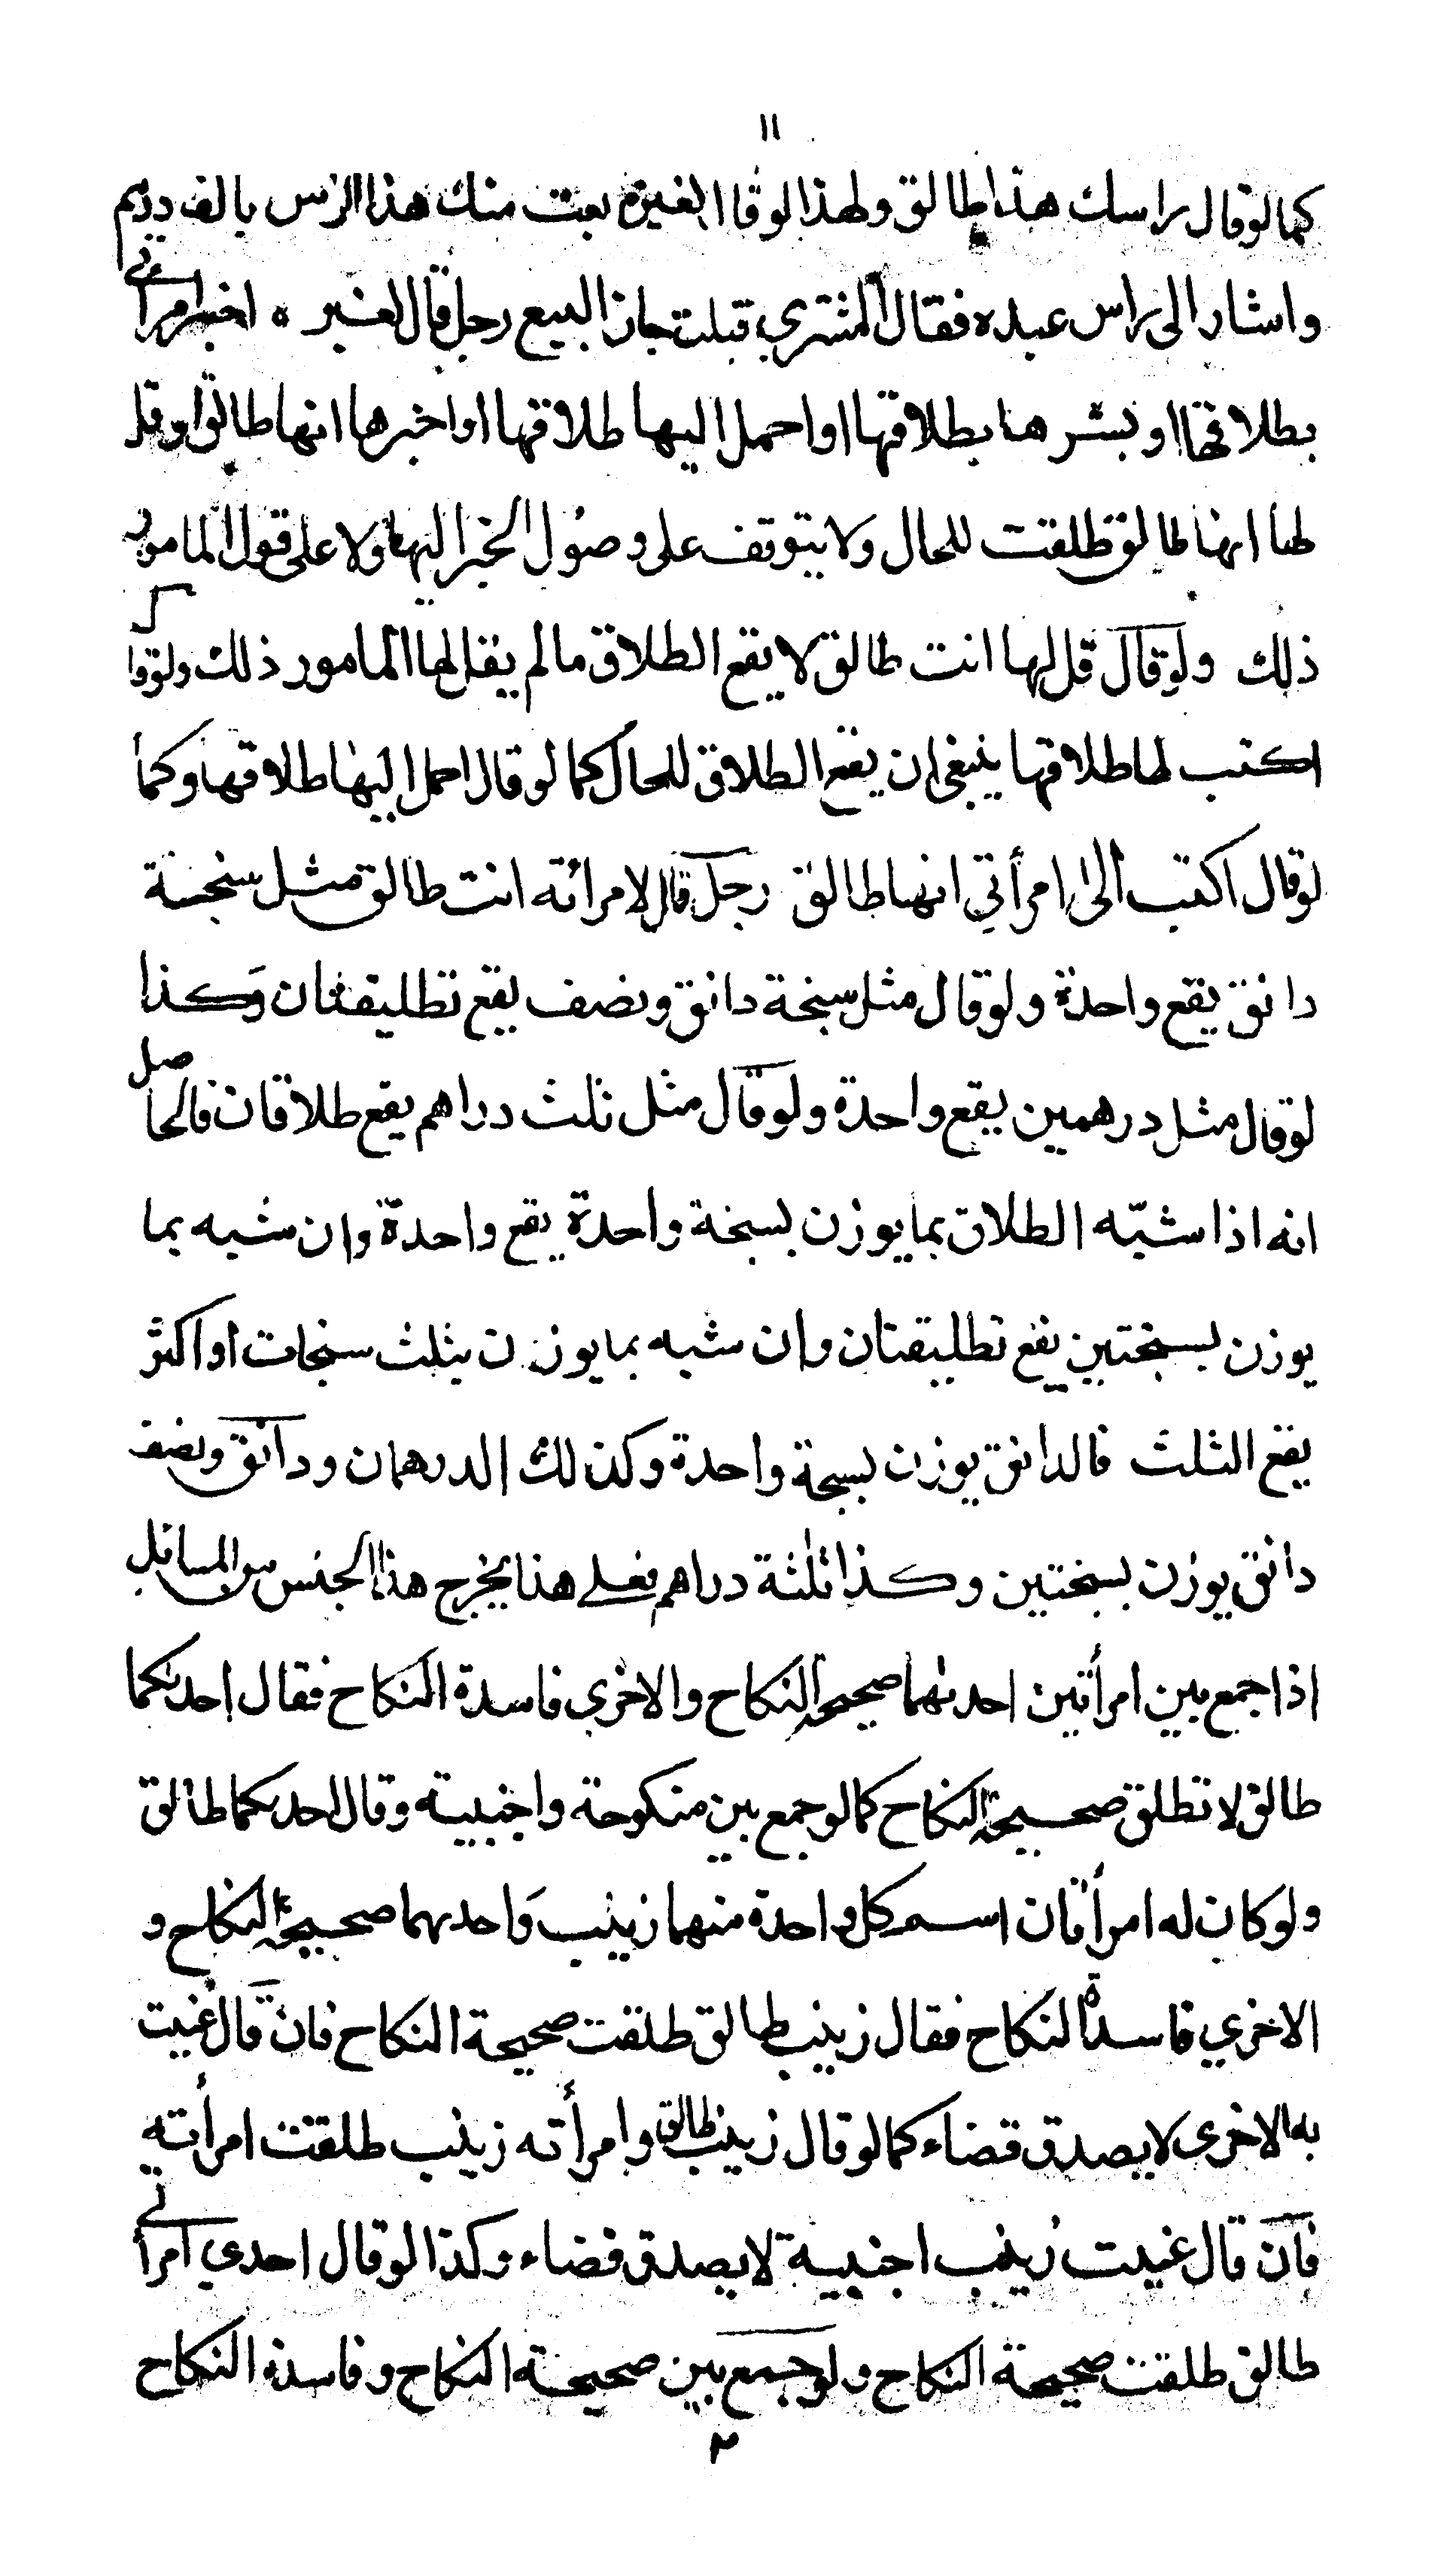 ١١
كما لو قال راسك هذا طالق ولهذا لو قال لغيره بعت منك هذا الراس بالف درهم
واشار الى راس عبده فقال المشتري قبلت جاز البيع رجل قال لغيره اخبر امرأتي
بطلاقها او بشرها بطلاقها او احمل اليها طلاقها او اخبرها انها طالق او قل
لها انها طالق طلقت للحال ولا يتوقف على وصول الخبر اليها ولا على قول المامور
ذلك ولو قال قل لها انت طالق لا يقع الطلاق ما لم يقل لها المامور ذلك ولو قال
اكتب لها طلاقها ينبغي ان يقع الطلاق للحال كما لو قال احمل اليها طلاقها وكما
لو قال اكتب الى امرأتي انها طالق رجل قال لامرائه انت طالق مثل سنجة
دانق يقع واحدة ولو قال مثل سنجة دانق ونصف يقع تطليقتان وكذا
لو قال مثل درهمين يقع واحدة ولو قال مثل ثلث دراهم يقع طلاقان فالحاصل
انه اذا شبّه الطلاق بما يوزن بسنجة واحدة يقع واحدة وان شبه بما
يوزن بسنجتين يقع تطليقتان وان شبه بما يوزن بثلث سنجات او اكثر
يقع الثلث فالدانق يوزن بسنجة واحدة وكذلك الدرهمان ودانق ونصف
دانق يوزن بسنجتين وكذا ثلثة دراهم فعلى هذا يخرج هذا الجنس من المسائل
اذا جمع بين امرأتين احدىهما صحيحة النكاح والاخري فاسدة النكاح فقال احدىكما
طالق لا تطلق صحيحة النكاح كما لو جمع بين منكوحة واجنبية وقال احدىكما طالق
ولو كان له امرأتان اسم كل واحدة منهما زينب واحدىهما صحيحة النكاح و
الاخري فاسدة النكاح فقال زينب طالق طلقت صحيحة النكاح فان قال عنيت
به الاخرى لا يصدق قضاء كما لو قال زينب طالق وامرأته زينب طلقت امرأته
فان قال عنيت زينب اجنبية لا يصدق قضاء وكذا لو قال احدي امرأتي
طالق طلقت صحيحة النكاح ولو جمع بين صحيحة النكاح وفاسدة النكاح
٢